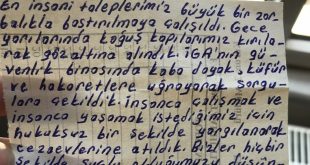 En insani taleplerimiz büyük bir zor-
balıkla bastırılmaya çalışıldı. Gece
yarılarında koğuş kapılarımız kırıla-
rak göz altına alındık. İGA'nın gü-
venlik binasında kaba dayak, küfür
ve hakaretlere uğrayarak sorgu-
lara çekildik. İnsanca çalışmak ve
insanca yaşamak istediğimiz için
hukuksuz bir şekilde yargılanarak
cezaevlerine atıldık. Bizler hiçbir
şekilde suçlu olduğumuzu düşün-